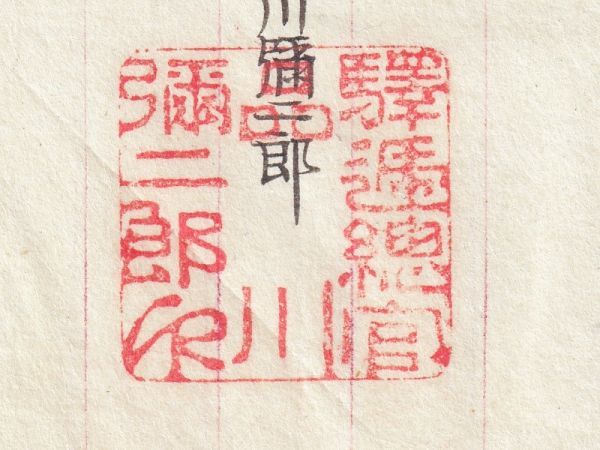 川彌二郎
驛遞總官
品川
彌二郎印